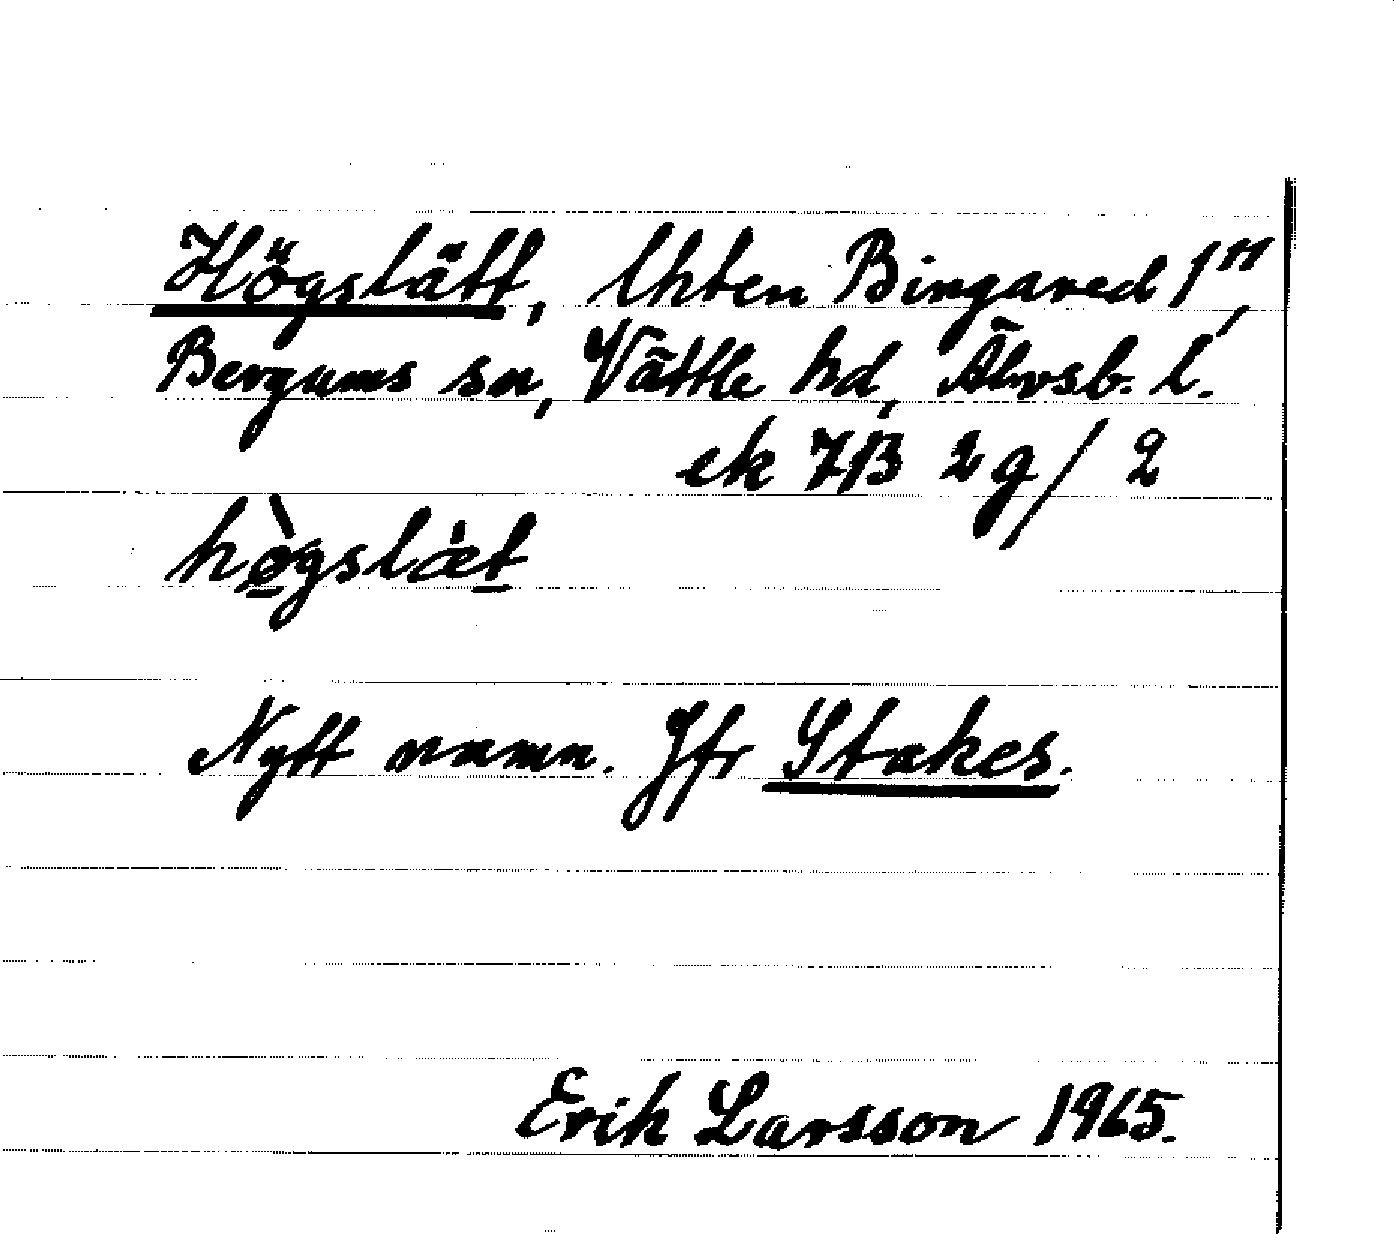 Högslätt, lhten Bingared 1¹¹,
Bergums sn, Vättle hd, Älvsb. l.
ek 7B 2g/2
hògslæ̀t
Nytt namn. Jfr Stakes.
Erik Larsson 1965.